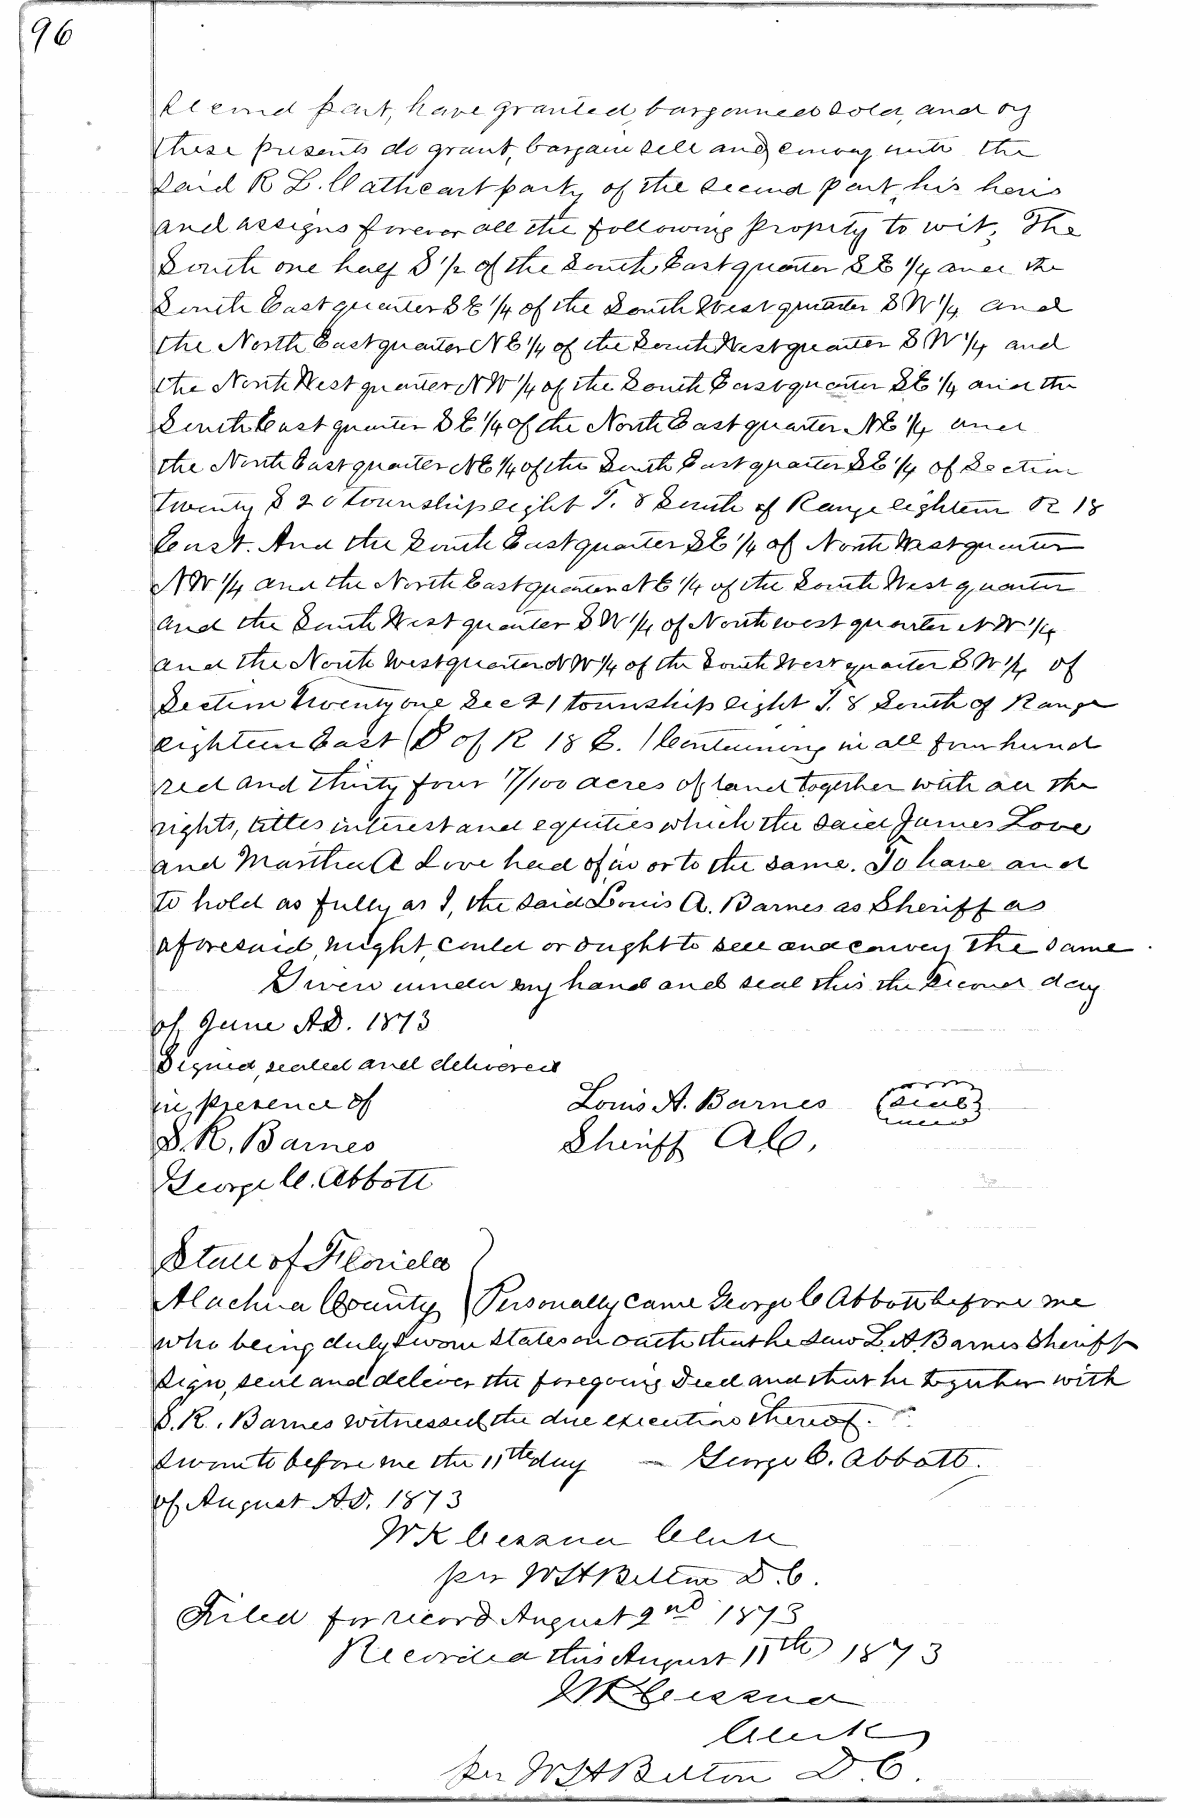 96
second part, have granted, bargained sold, and by
these presents do grant, bargain sell and convey unto the
said R L. Cathcart party of the second part, his heirs
and assigns forever all the following Property to wit; The
South one half S 1/2 of the South East quarter SE 1/4 and the
South East quarter SE 1/4 of the South West quarter SW 1/4 and
the North East quarter NE 1/4 of the South West quarter SW 1/4 and
the North West quarter NW 1/4 of the South East quarter SE 1/4 and the
South East quarter SE 1/4 of the North East quarter NE 1/4 and
the North East quarter NE 1/4 of the South East quarter SE 1/4 of Section
twenty S 20 township eight T. 8 South of Range eighteen R 18
East. And the South East quarter SE 1/4 of North West quarter
NW 1/4 and the North East quarter NE 1/4 of the South West quarter
and the South West quarter SW 1/4 of North west quarter NW 1/4
and the North West quarter NW 1/4 of the South West quarter SW 1/4 of
Section Twenty one Sec 21 township eight T. 8 South of Range
eighteen East (S of R 18 E.) Containing in all four hund
red and thirty four 17/100 acres of land together with all the
rights, titles interest and equities which the said James Love
and Martha A Love had of in or to the same. To have and
to hold as fully as I, the said Louis A. Barnes as Sheriff as
aforesaid, might, could or ought to sell and convey the same.
Given under my hand and seal this the Second day
of June A.D. 1873
Signed, sealed and delivered
in presence of Louis A. Barnes (seal)
S. R. Barnes Sheriff A.C.
George C. Abbott
State of Florida
Alachua County } Personally came George C Abbott before me
who being duly sworn states on oath that he saw L. A. Barnes Sheriff
sign, seal and deliver the foregoing Deed and that he together with
S. R. Barnes witnessed the due execution thereof.
Sworn to before me the 11th day — George C. Abbott.
of August A.D. 1873
W K Cessna Clerk
per W H Belton D. C.
Filed for record August 2nd 1873
Recorded this August 11th 1873
W K Cessna
Clerk
per W H Belton D. C.